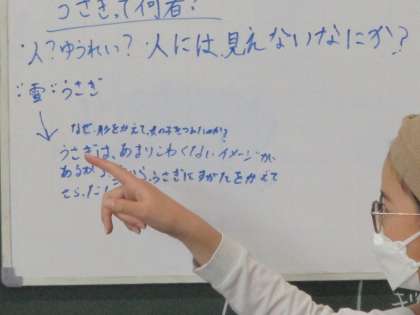 うさぎって何者?
人?ゆうれい?人には見えないなにか?
雪 うさぎ
なぜ形をかえて女の子をつれたのか?
うさぎは、あまりこわくないイメージが
あるから うさぎにすがたをかえて
さらった